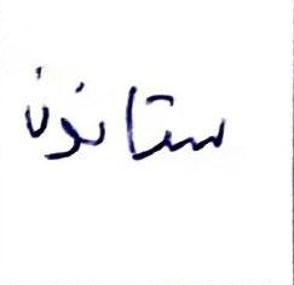 ستانون